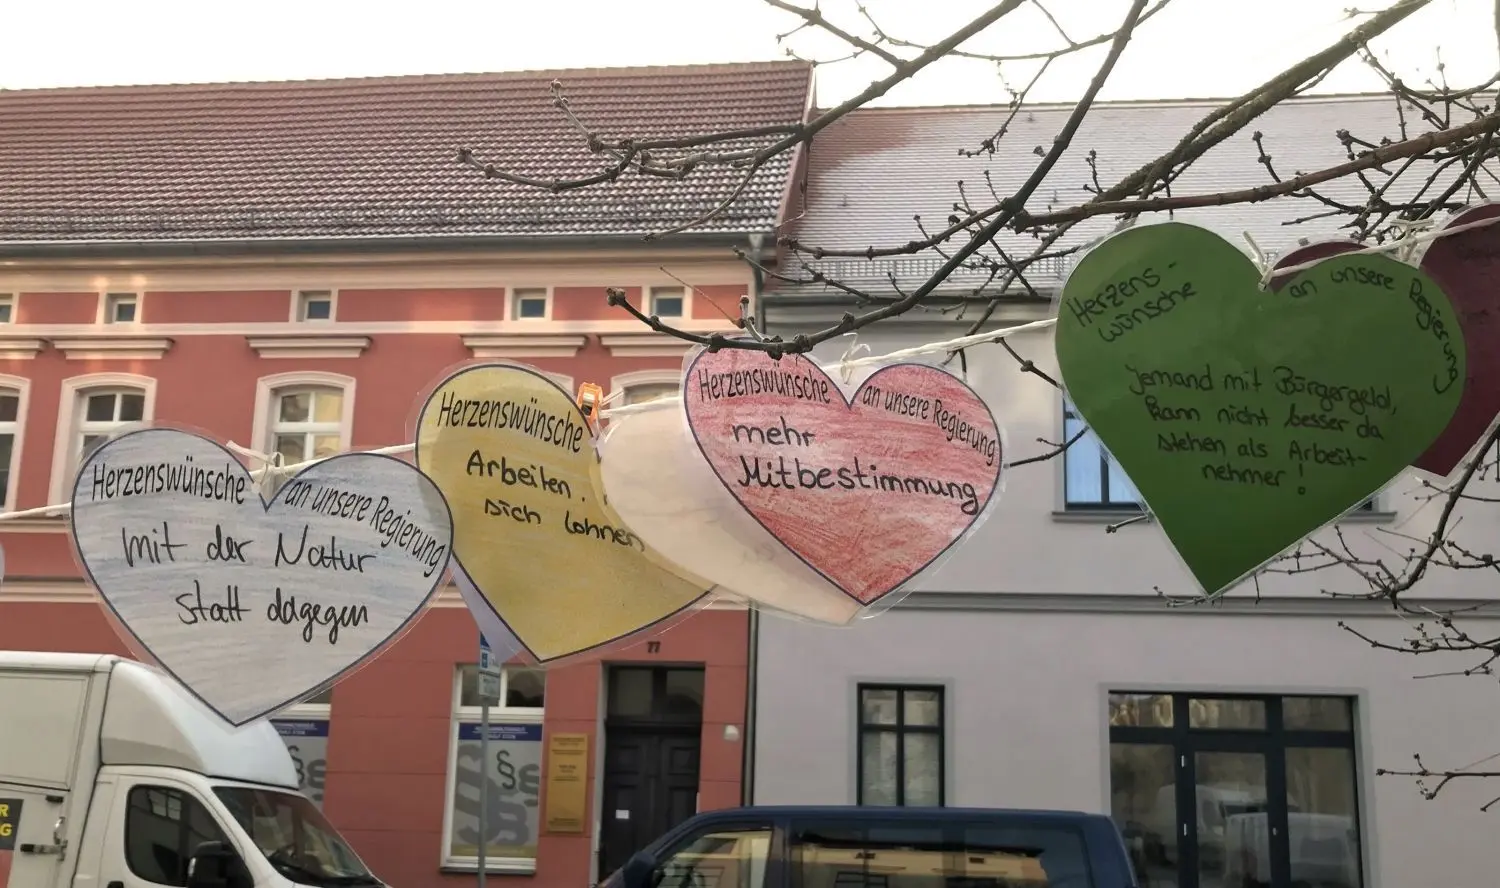 Herzenswünsche an unsere Regierung
mit der Natur
statt dagegen
Herzenswünsche
Arbeiten
sich lohnen
Herzenswünsche an unsere Regierung
mehr
Mitbestimmung
Herzens-
wünsche
an unsere Regierung
Jemand mit Bürgergeld,
kann nicht besser da
stehen als Arbeit-
nehmer!
77
§
§§